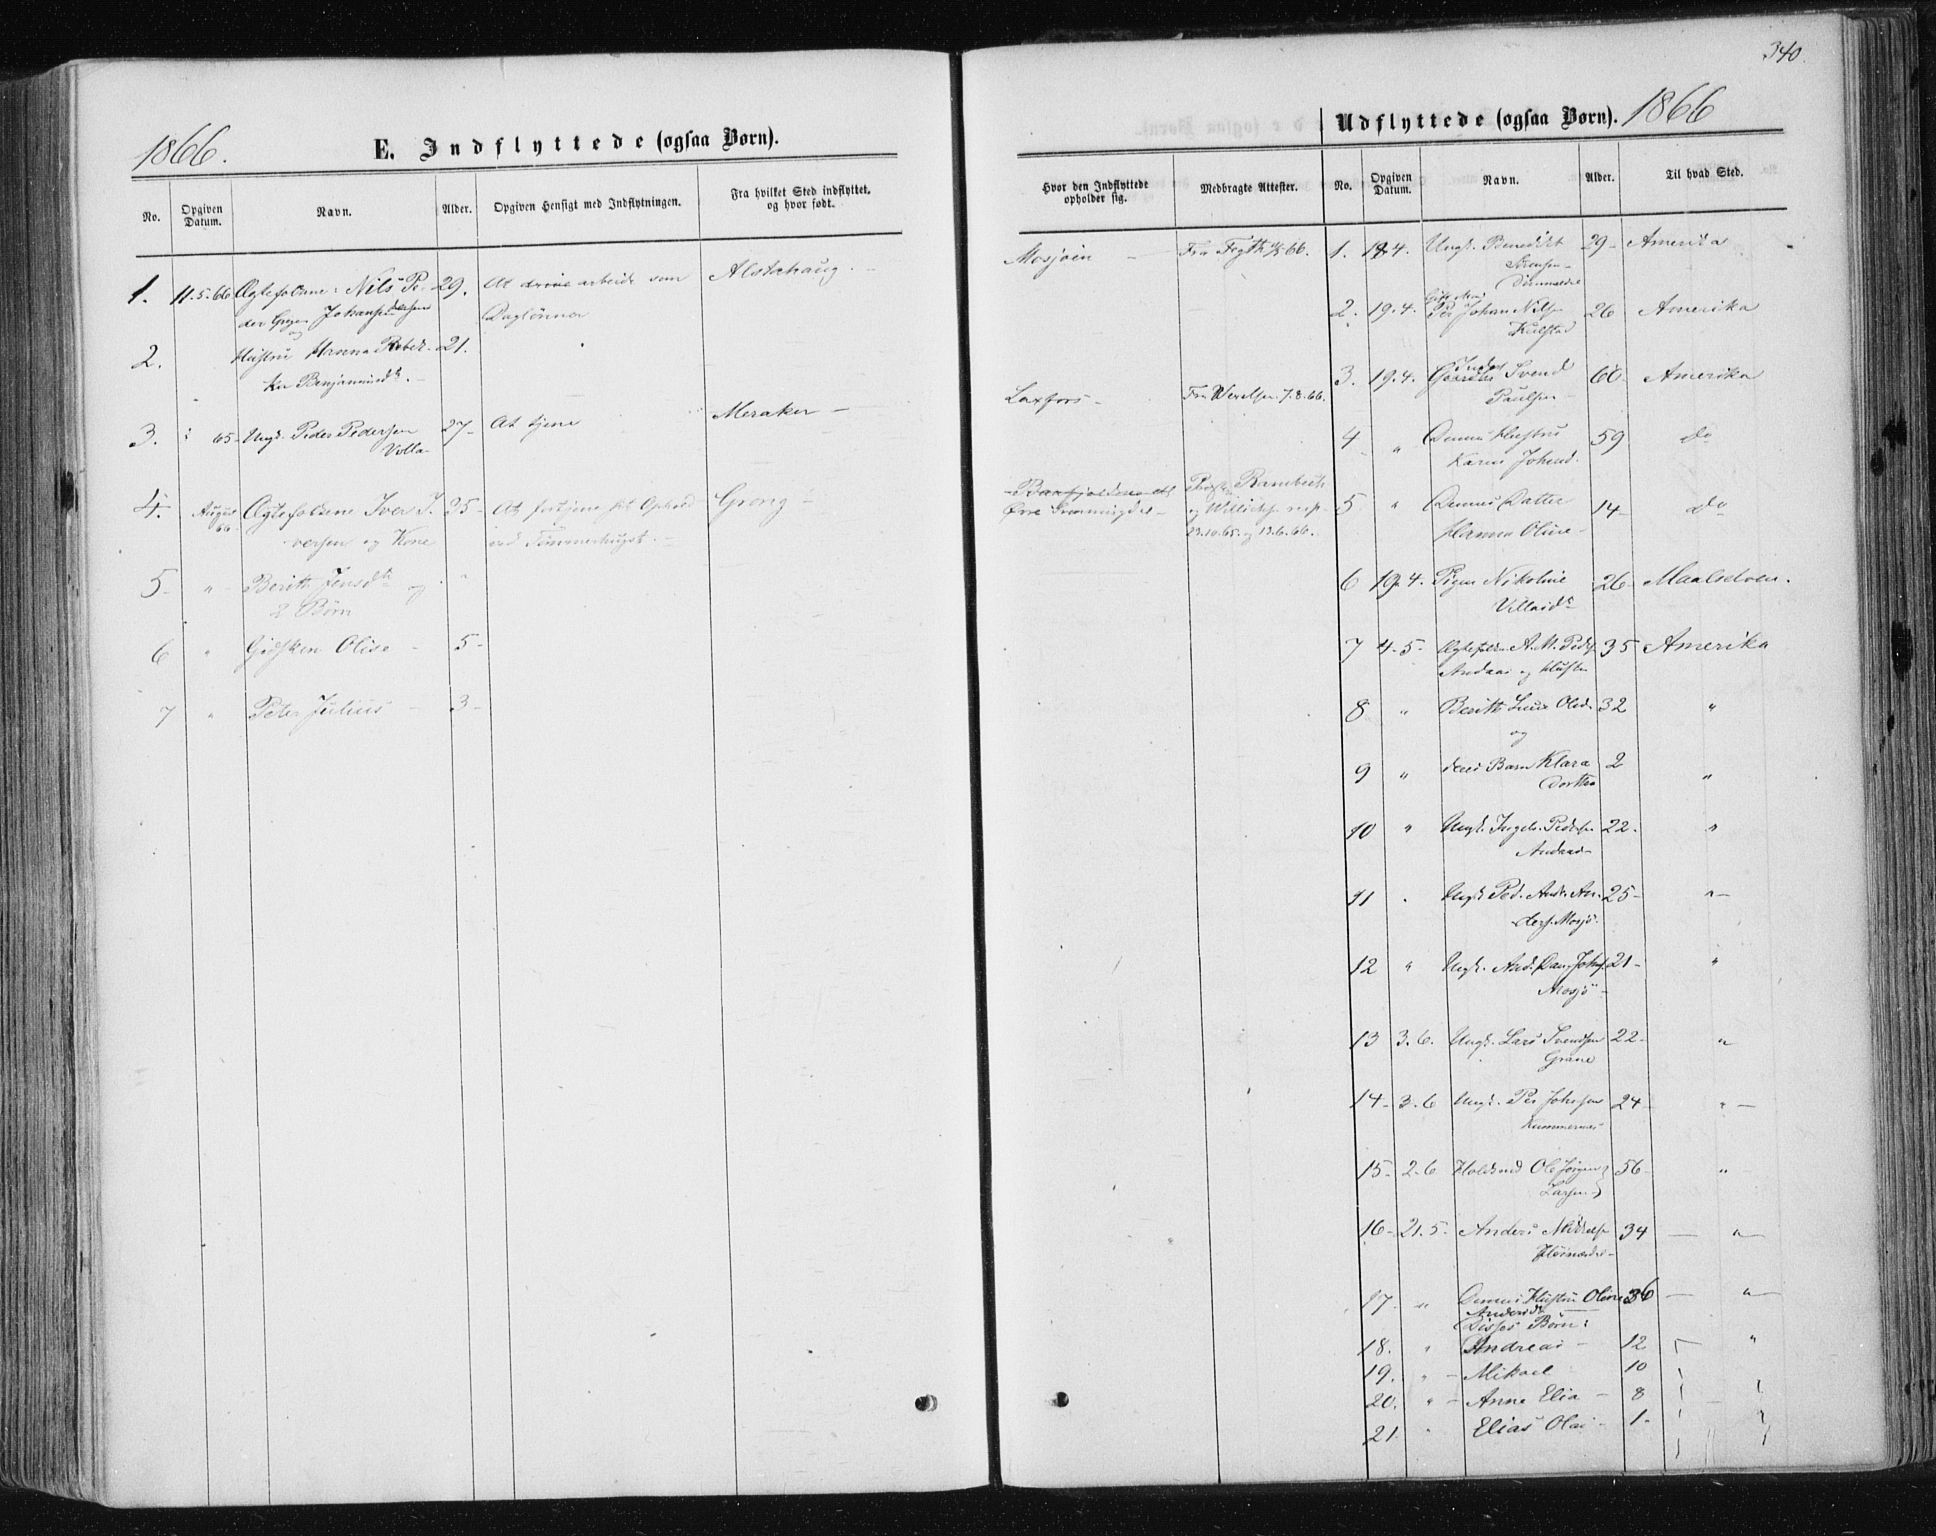 340.
1866.
E. Indflyttede (ogsaa Børn).
No.
Opgiven Datum.
Navn.
Alder.
Opgiven Hensigt med Indflytningen.
Fra hvilket Sted indflyttet. og hvor født.
1. 11.5.66 Ægtefolkene: Nils Pe- 29. At drive arbeide som Alstahaug.
Johans
Daglönner
2. Hustru Hanna Rebek- 21.
ka Benjaminsdt.
3. 65 Ungk. Peder Pedersen 27 At tjene Meraker
4. August 66 Ægtefolkene Iver I- 35 At fortjene sit Ophold Grong
versen og Kone ved Tømmerhugst.
5 " Berith Jensdt og "
2 Børn
6 " Gidsken Olise 5
7 " Peter Julius 3
Udflyttede (ogsaa Børn). 1866
Hvor den Indflyttede opholder sig.
Medbragte Attester.
No.
Opgiven Datum.
Navn.
Alder.
Til hvad Sted.
Mosjøen Fra 66.
Laxfors Fra 7.8.66.
og
23.10.65. og 13.6.66.
1. 19.4. Ungk. Benedikt 29 Amerika
2. 19.4. Johan Nils. 26 Amerika
Kulstad
3. 19.4. Svend 60 Amerika
Paulsen
4 " Dennes Hustru 59 do
Karen Johnsd.
5 " Dennes Datter 14 do
Hanna Oline
6 19.4. Pigen Nikoline 26 Maalselven.
7 4.5. Ægtefolk. A. M. Peders. 35 Amerika
Andaas og Hustru
8 " Berith Olsd. 32 "
og
9 " deres Barn Klara 2 "
Dorthea
10 " Ungk. Peders. 22. "
Andaas
11 " Ungk. Ped. Andr. An- 25 "
ders. Mosjö.
12 " Ungk. And. Dan. Johns. 21 "
Mosjö
13 3.6. Ungk. Lars Svendsen 22 "
Grane
14 3.6 Ungk. Per Johnsen 24 "
15 2.6 Ole Jörgen 56 "
Larsen
16 21.5. Anders 34 "
17. " Dennes Hustru Oline 36 "
Andersdt.
Disses Børn:
18. " Andreas 12 "
19. " Mikael 10
20. " Anne Elia 8
21 " Elias Olai 1